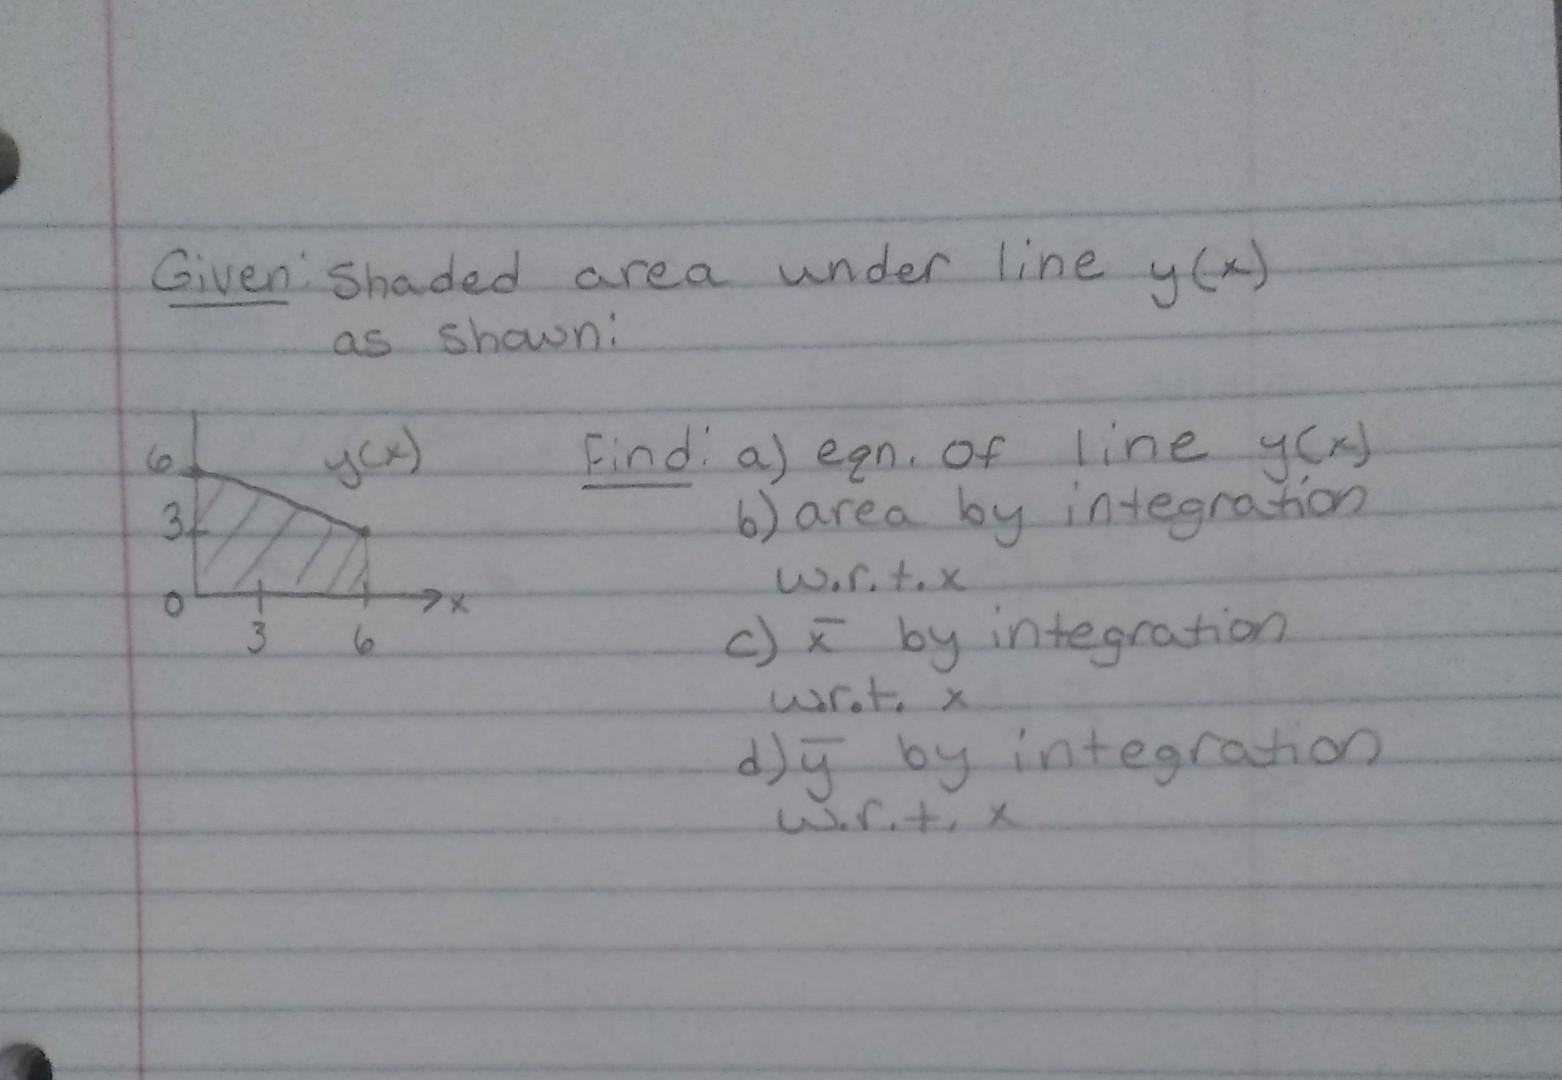 Given: Shaded area under line y(x)
as shown:
6
y(x)
3
0
x
3 6
Find: a) eqn. of line y(x)
b) area by integration
w.r.t. x
c) x̄ by integration
w.r.t. x
d) ȳ by integration
w.r.t. x